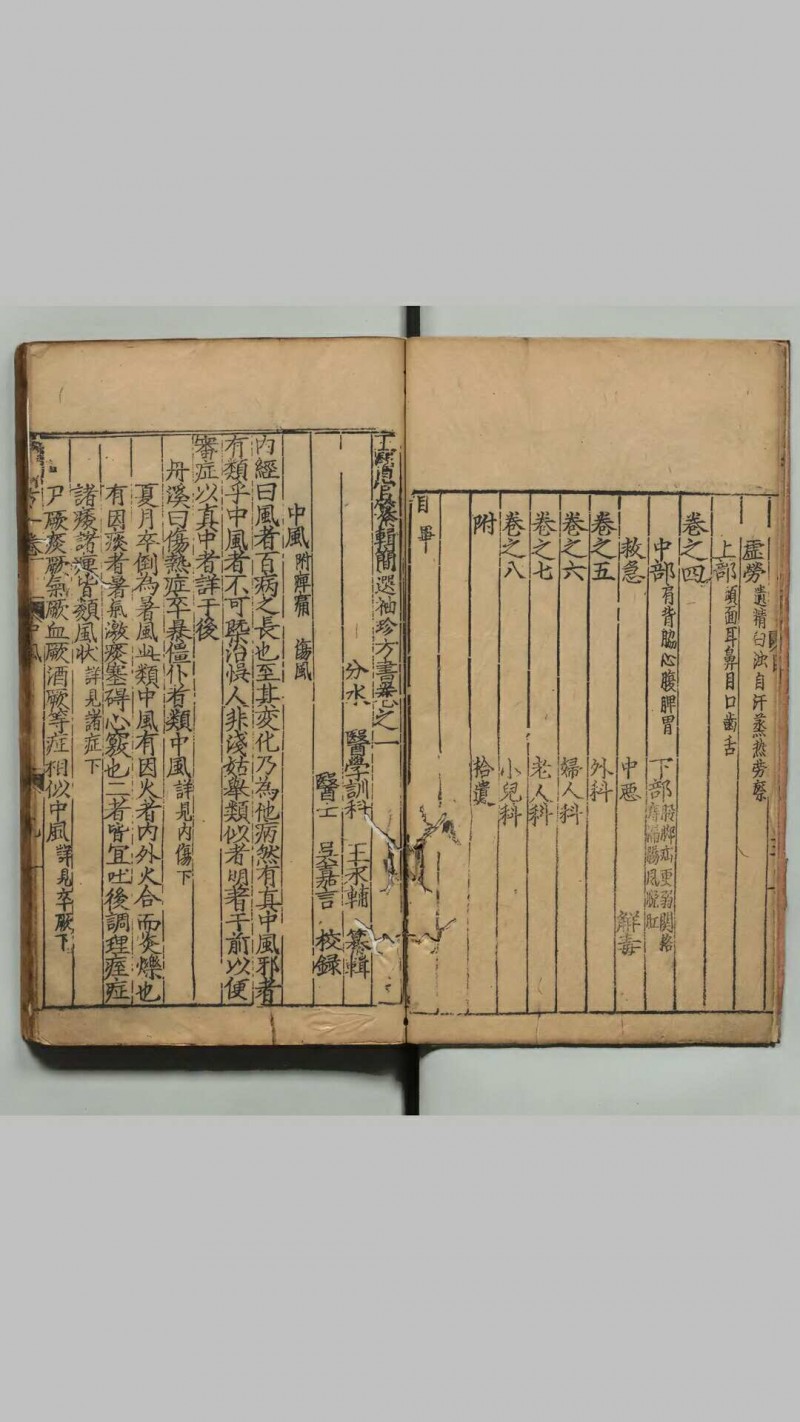 虛勞 遺精白濁自汗蒸熱勞瘵
上部 頭面耳鼻目口齒舌
卷之四
中部 肩背脇心腹脾胃 下部
救急 中惡 解毒
卷之五 外科
卷之六 婦人科
卷之七 老人科
卷之八 小兒科
附 拾遺
目畢
纂輯簡選袖珍方書卷之一
分水 醫學訓科 王永輔 纂輯
醫士 吳嘉言 校録
中風 附 傷風
內經曰風者百病之長也至其変化乃為他病然有真中風邪者
有類乎中風者不可槩治悞人非淺姑舉類似者明著于前以便
審症以真中者詳于後
丹溪曰傷熱症卒暴僵仆者類中風 詳見內傷下
夏月卒倒為暑風此類中風有因火者內外火合而炎爍也
有因痰者暑氣激痰塞碍心竅也二者皆宜吐後調理痓症
諸痿諸痺皆類風狀 詳見諸症下
尸厥痰厥氣厥血厥酒厥等症相似中風 詳見卒厥下